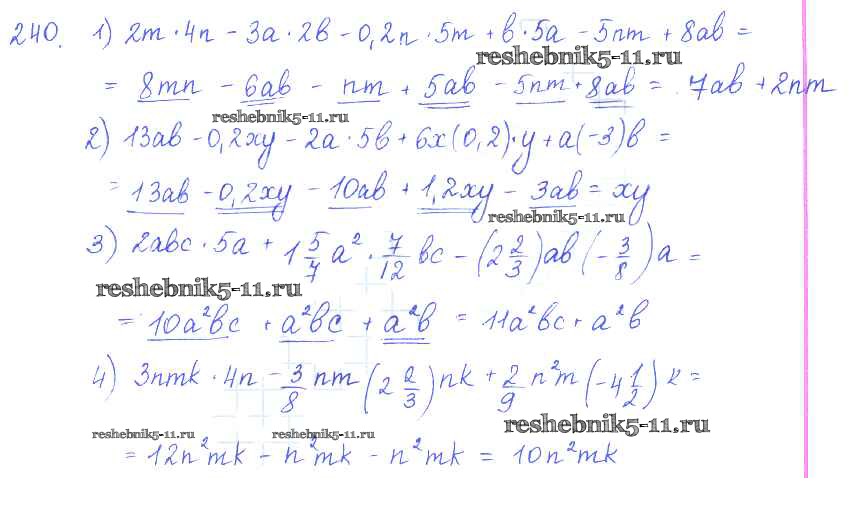 240. 1) 2m · 4n − 3a · 2b − 0,2n · 5m + b · 5a − 5nm + 8ab =
reshebnik5-11.ru
= 8mn − 6ab − nm + 5ab − 5nm + 8ab = 7ab + 2nm
reshebnik5-11.ru
2) 13ab − 0,2xy − 2a · 5b + 6x(0,2) · y + a(−3)b =
= 13ab − 0,2xy − 10ab + 1,2xy − 3ab = xy
reshebnik5-11.ru
3) 2abc · 5a + 1 5/7 a² · 7/12 bc − (2 2/3) ab (− 3/8) a =
reshebnik5-11.ru
= 10a²bc + a²bc + a²b = 11a²bc + a²b
4) 3nmk · 4n − 3/8 nm (2 2/3) nk + 2/9 n²m (−4 1/2) k =
reshebnik5-11.ru
reshebnik5-11.ru reshebnik5-11.ru
= 12n²mk − n²mk − n²mk = 10n²mk